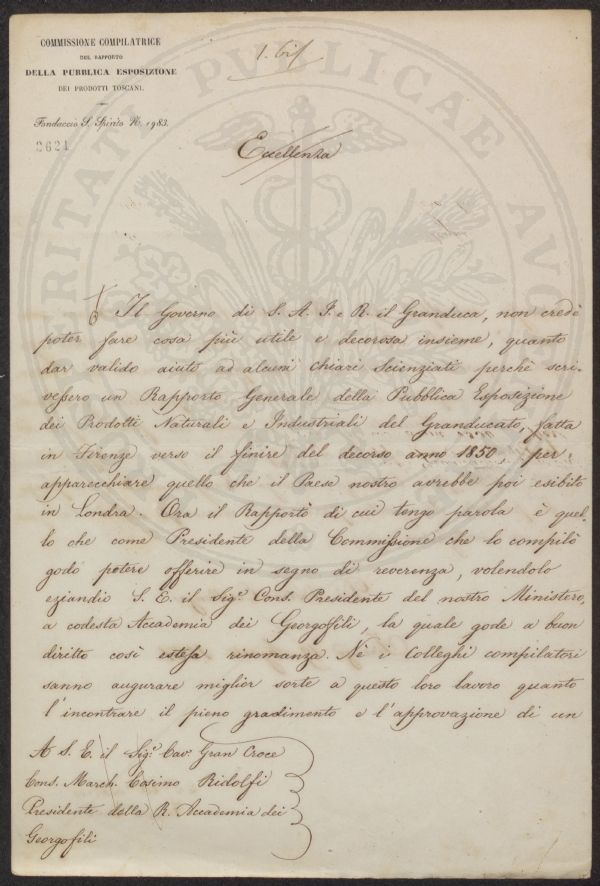 COMMISSIONE COMPILATRICE
DEL RAPPORTO
DELLA PUBBLICA ESPOSIZIONE
DEI PRODOTTI TOSCANI.
Fondaccio S. Spirito N. 1983.
2621
1. bis
Eccellenza
Il Governo di S. A. I. e R. il Granduca, non credè
poter fare cosa più utile e decorosa insieme, quanto
dar valido aiuto ad alcuni chiari Scienziati perchè scri-
vessero un Rapporto Generale della Pubblica Esposizione
dei Prodotti Naturali e Industriali del Granducato, fatta
in Firenze verso il finire del decorso anno 1850, per
apparecchiare quello che il Paese nostro avrebbe poi esibito
in Londra. Ora il Rapporto di cui tengo parola è quel-
lo che come Presidente della Commissione che lo compilò
godo potere offerire in segno di reverenza, volendolo
eziandio S. E. il Sigr. Cons. Presidente del nostro Ministero,
a codesta Accademia dei Georgofili, la quale gode a buon
diritto così estesa rinomanza. Nè i Colleghi compilatori
sanno augurare miglior sorte a questo loro lavoro quanto
l'incontrare il pieno gradimento e l'approvazione di un
A S. E. il Sigr. Cav. Gran Croce
Cons. March. Cosimo Ridolfi
Presidente della R. Accademia dei
Georgofili
PUBLICAE